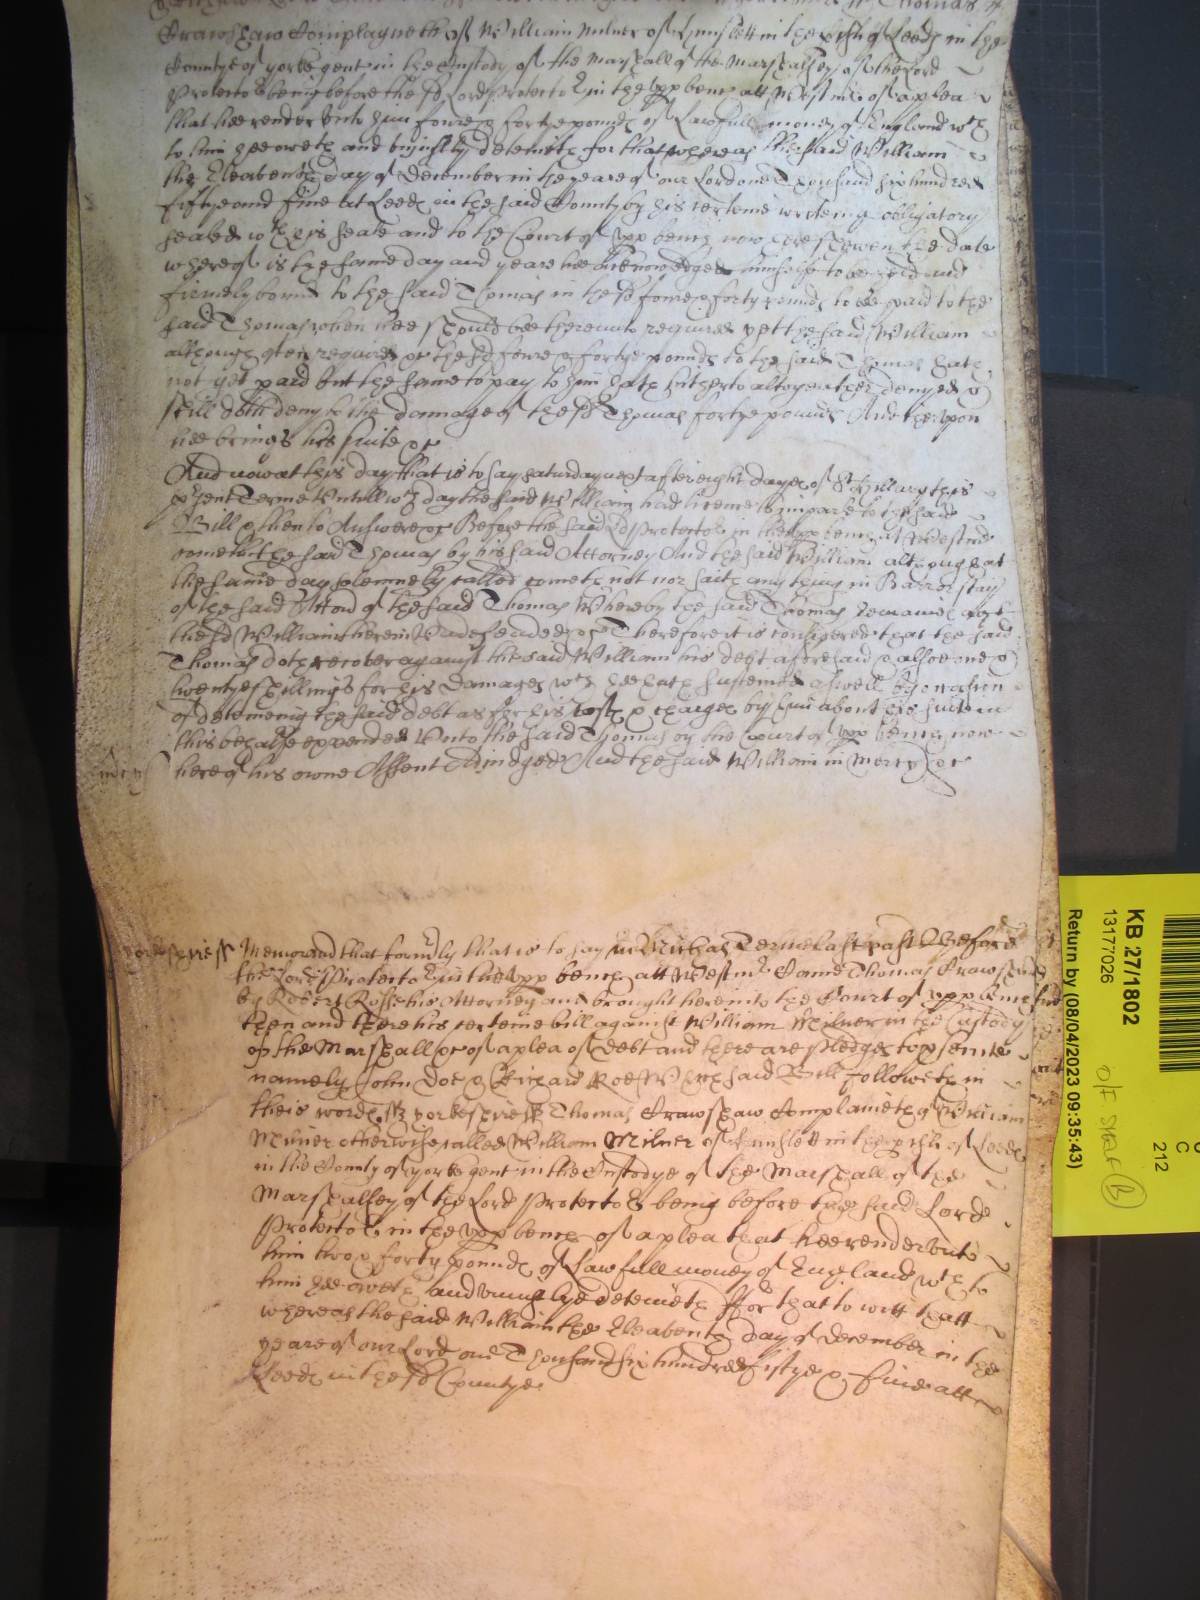 Crawshaw Complayneth of William Milner of Hunslett in the pish of Leedς in the
Countye of yorke gent in the Custody of the Marshall of the Marshalsey of the Lord
Protector being before the sd Lord Protector in the vpp bench att Westmr of a plea
that hee render vnto him foure & fortye poundς of Lawfull money of England wch
to him hee oweth and vniustly deteineth for that whereas the said William
the Eleaventh day of december in the yeare of our Lord one Thousand six hundred
fiftye and fiue at Leedς in the said County by his certeine writeing obligatory
sealed wth his seale and to the Court of vpp bench now here shewen the date
whereof is the same day and yeare hee acknowledged himselfe to be held and
firmely bound to the said Thomas in the sd foure & forty poundς to bee paid to the
said Thomas when hee should bee therevnto required yet the said William
although often required &c the sd foure & fortye poundς to the said Thomas hath
not yet paid but the same to pay to him hath hitherto altogeather denyed &
still doth deny to the damage of the sd Thomas fortye poundς And thervpon
hee brings his suite &c
And now at this day that is to say saturday next after eight dayes of St Hillary this
pesent Terme vntill wch day the said William had licence to imparle to the said
Bill & then to Answere &c Before the said Ld Protector in the vpp bench at Westmr
cometh the said Thomas by his said Attorney And the said William although at
the same day solemnely called cometh not nor saith any thing in Barr or stay
of the said Accon of the said Thomas Whereby the said Thomas remaines agt
the sd William therein Vndefended &c Therefore it is considered that the said
Thomas doth recover against the said William his debt aforesaid & alsoe one &
twenty shillings for his damages wch hee hath susteined aswell by occasion
of deteineing the said debt as for his costς & charges by him about his suite in
this behalfe expended Vnto the said Thomas by the Court of vpp bench now
here of his owne Assent Adiudged And the said William in Mercy &c
yorkeshire ss Memorand that formrly that is to say in Michas Terme last past Before
the Lord Protector in the vpp bench att Westmr Came Thomas Crawshaw
by Robert Rosse his Attorney and brought here into the Court of vpp bench
then and there his certeine bill against William Milner in the Custody
of the Marshall &c of a plea of debt and there are pledges to psecute
namely John Doe & Richard Roe Wch said Bill followeth in
theis wordς ss yorkeshire ss Thomas Crawshaw Complaineth of William
Milner otherwise called William Milner of Hunslett in the pish of Leedς
in the County of yorke gent in the Custodye of the Marshall of the
Marshalsey of the Lord Protector being before the said Lord
Protector in the vpp bench of a plea that hee render vnto
him two & forty poundς of Lawfull money of England wch to
him hee oweth and vniustlye deteineth ffor that to witt that
whereas the said William the Eleaventh day of december in the
yeare of our Lord one Thousand six hundred fiftye & fiue att
Leedς in the sd Countye
KB 27/1802
13177026
Return by (08/04/2023 09:35:43)
212